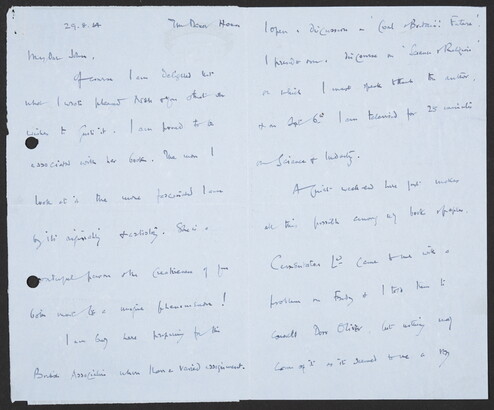 29.8.54 The Dower House
My dear John,
Of course I am delighted that
what I wrote pleased Nebb & you that she
wishes to quote it. I am proud to be
associated with her book. The more I
look at it the more fascinated I am
by its originality & artistry. She is a
wonderful person & the consciousness of you
both must be a unique phenomenon!
I am busy here preparing for the
British Association where I have a varied assignment.
I open a discussion on 'Coal & Britain's Future'
I preside over a discourse on 'Science & Religion'
on which I must speak thanks to the author,
& on Sept 6th I am televised for 25 minutes
on Science & Industry.
A quiet weekend here just makes
all this possible among my books & papers.
Ltd came to me with a
problem on & I told them to
consult Dr Oliver, but nothing may
come of it as it seemed to me a very